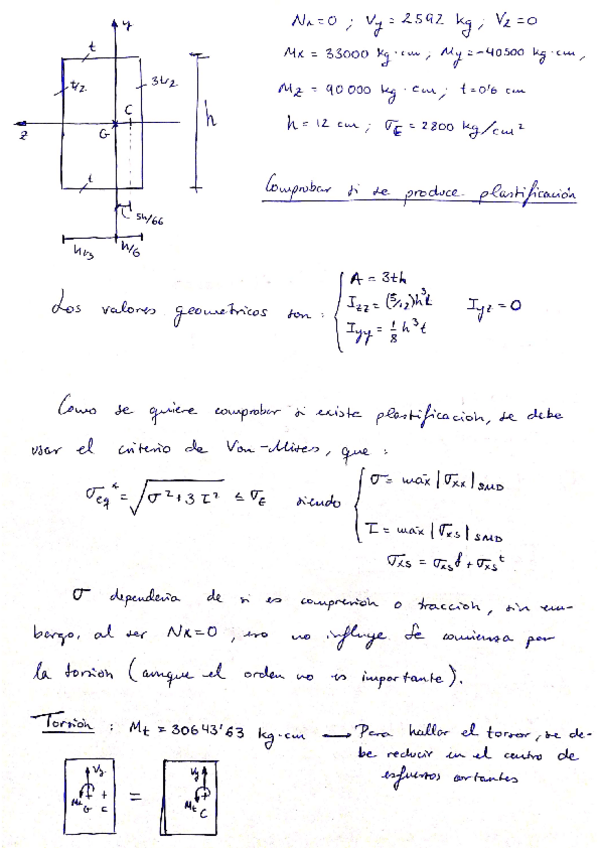 Nx=0 ; Vy = 2592 kg ; Vz=0
Mx = 33000 kg·cm ; My=-40500 kg·cm ,
Mz = 90000 kg·cm ; t=0'6 cm
h = 12 cm ; σE = 2800 kg/cm²
Comprobar si se produce plastificación
y
t
t/2
3t/2
C
G
z
h
t
5h/66
h/3
h/6
Los valores geometricos son :
A = 3th
Izz = (5/12)h³t
Iyy = 1/8 h³t
Iyz = 0
Como se quiere comprobar si existe plastificación, se debe
usar el criterio de Von-Mises, que :
σeq* = √σ²+3τ² ≤ σE siendo
σ = máx |σxx| SMD
τ = máx |σxs| SMD
σxs = σxs^f + σxs^t
σ dependeria de si es compresión o tracción, sin em-
bargo, al ser Nx=0, eso no influye. Se comienza por
la torsión (aunque el orden no es importante).
Torsión : Mt = 30643'63 kg·cm → Para hallar el torsor, se de-
be reducir en el centro de
esfuerzos cortantes
Vy
Mx
G
C
=
Vy
Mt
C